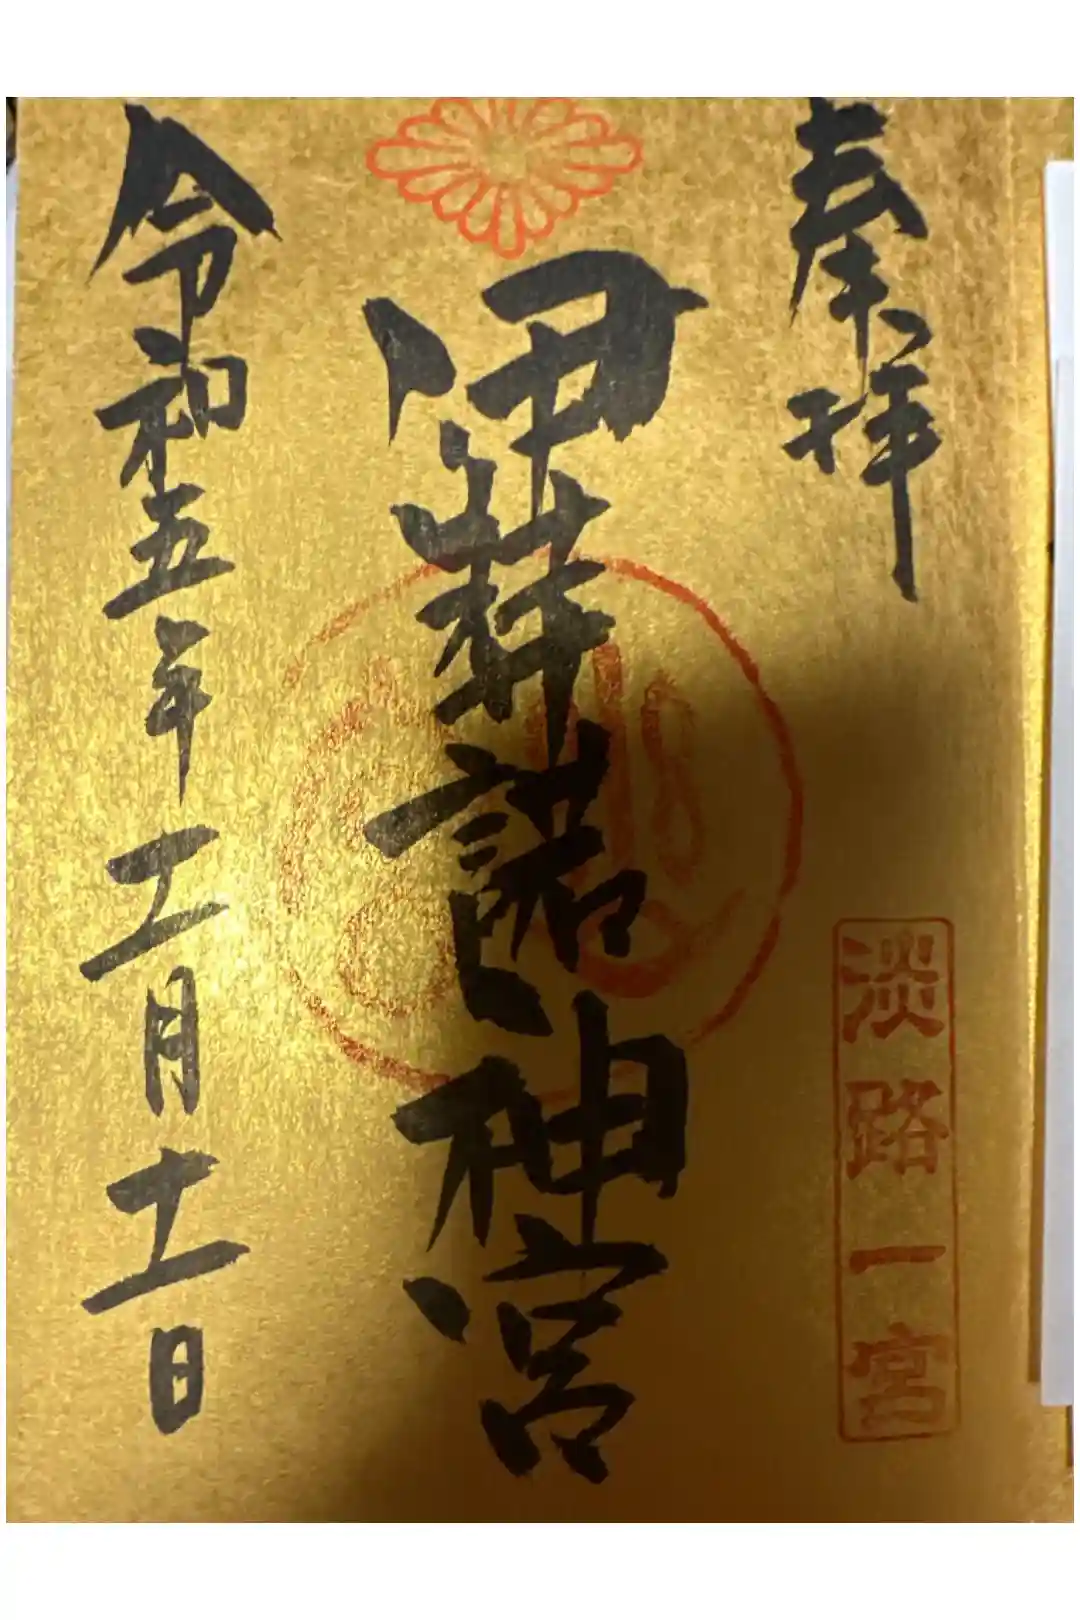 奉拝
淡路一宮
伊弉諾神宮
令和五年二月十一日